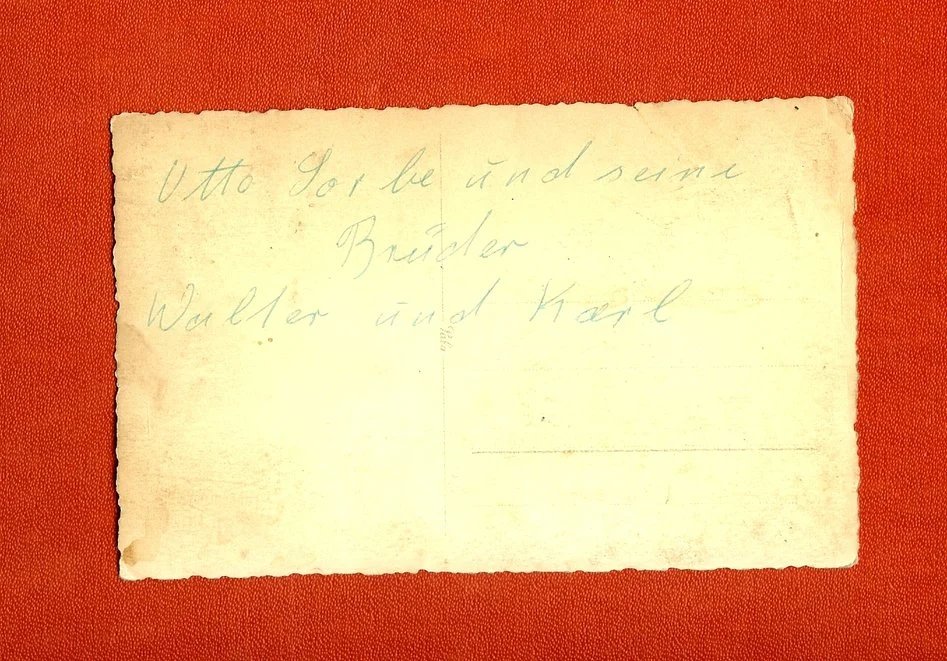 Otto Sorbe und seine
Brüder
Walter und Karl